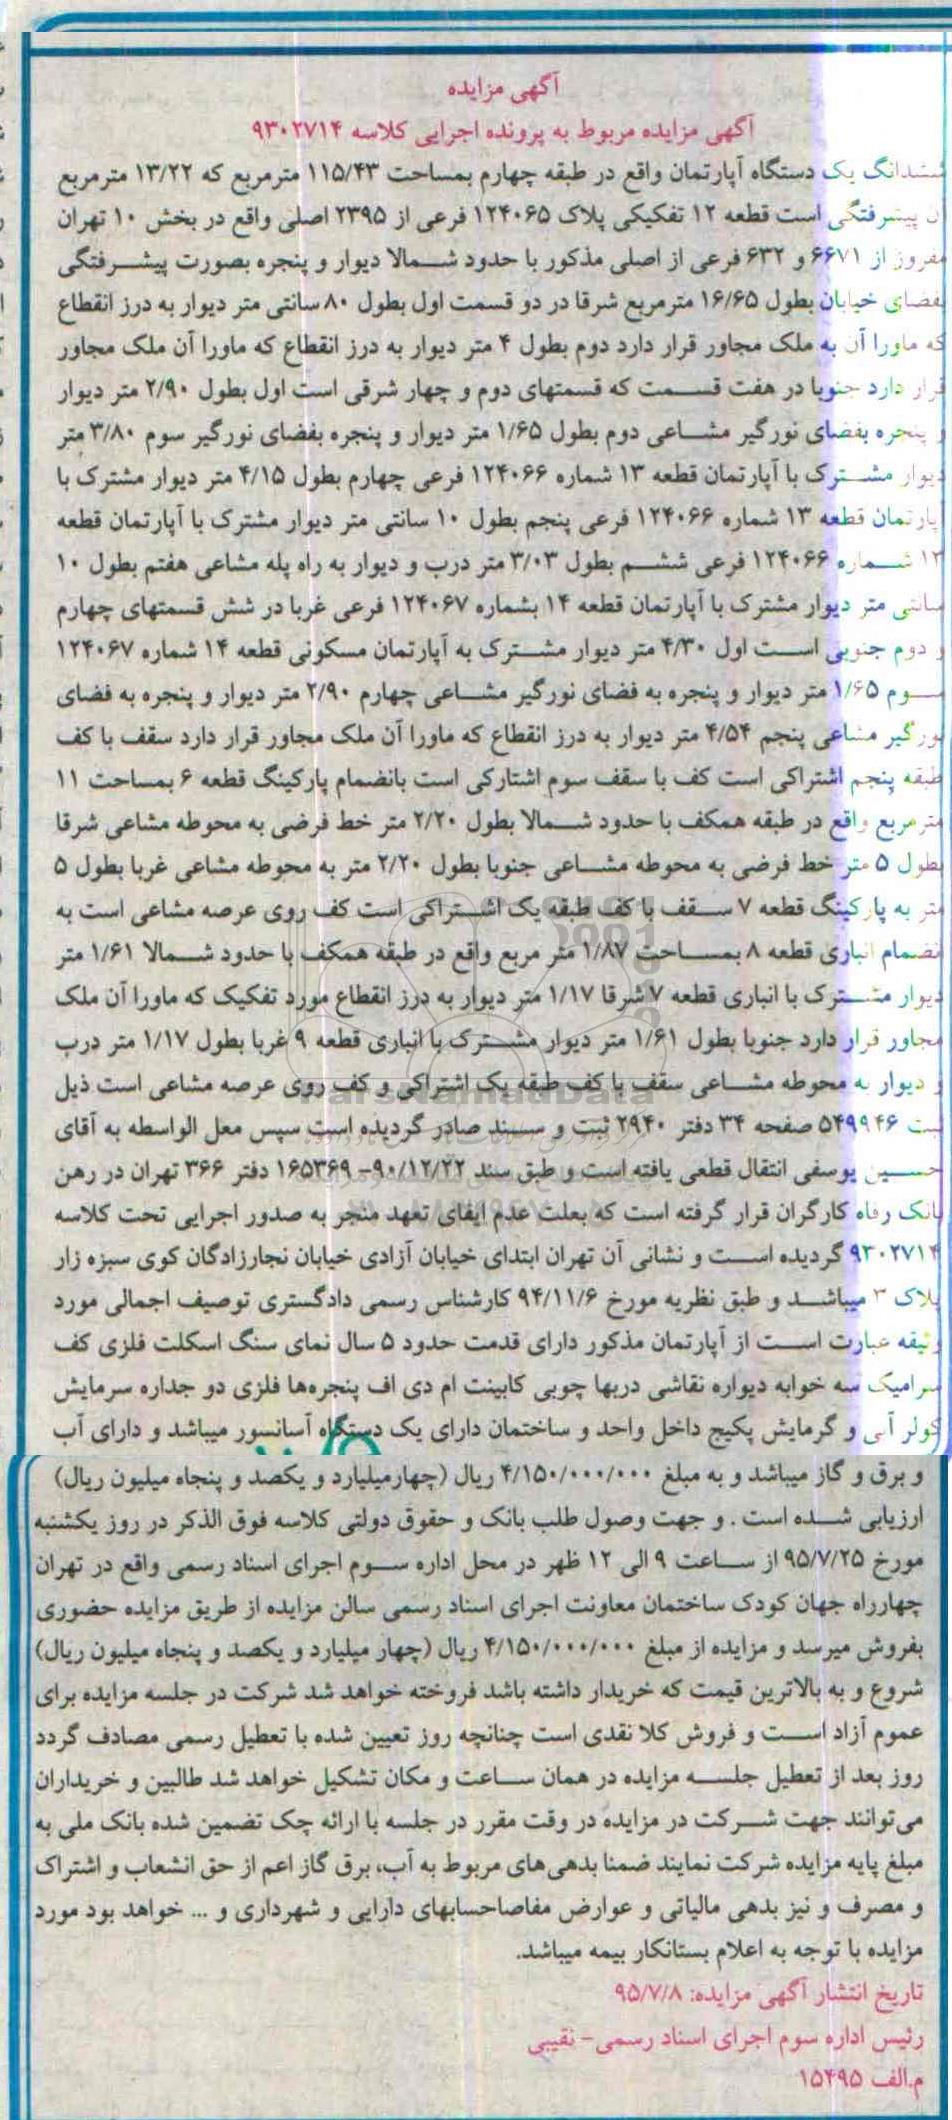 آگهی مزایده
آگهی مزایده مربوط به پرونده اجرایی کلاسه ۹۳۰۲۷۱۴
ششدانگ یک دستگاه آپارتمان واقع در طبقه چهارم بمساحت ۱۱۵/۴۳ مترمربع که ۱۳/۲۲ مترمربع
آن پیشرفتگی است قطعه ۱۲ تفکیکی پلاک ۱۲۴۰۶۵ فرعی از ۲۳۹۵ اصلی واقع در بخش ۱۰ تهران
مفروز از ۶۶۷۱ و ۶۳۲ فرعی از اصلی مذکور با حدود شمالا دیوار و پنجره بصورت پیشرفتگی
بفضای خیابان بطول ۱۶/۶۵ مترمربع شرقا در دو قسمت اول بطول ۸۰ سانتی متر دیوار به درز انقطاع
که ماورا آن به ملک مجاور قرار دارد دوم بطول ۴ متر دیوار به درز انقطاع که ماورا آن ملک مجاور
قرار دارد جنوبا در هفت قسمت که قسمتهای دوم و چهار شرقی است اول بطول ۲/۹۰ متر دیوار
و پنجره بفضای نورگیر مشاعی دوم بطول ۱/۶۵ متر دیوار و پنجره بفضای نورگیر سوم ۳/۸۰ متر
دیوار مشترک با آپارتمان قطعه ۱۳ شماره ۱۲۴۰۶۶ فرعی چهارم بطول ۴/۱۵ متر دیوار مشترک با
آپارتمان قطعه ۱۳ شماره ۱۲۴۰۶۶ فرعی پنجم بطول ۱۰ سانتی متر دیوار مشترک با آپارتمان قطعه
۱۳ شماره ۱۲۴۰۶۶ فرعی ششم بطول ۳/۰۳ متر درب و دیوار به راه پله مشاعی هفتم بطول ۱۰
سانتی متر دیوار مشترک با آپارتمان قطعه ۱۴ بشماره ۱۲۴۰۶۷ فرعی غربا در شش قسمتهای چهارم
و دوم جنوبی است اول ۴/۳۰ متر دیوار مشترک به آپارتمان مسکونی قطعه ۱۴ شماره ۱۲۴۰۶۷
سوم ۱/۶۵ متر دیوار و پنجره به فضای نورگیر مشاعی چهارم ۲/۹۰ متر دیوار و پنجره به فضای
نورگیر مشاعی پنجم ۴/۵۴ متر دیوار به درز انقطاع که ماورا آن ملک مجاور قرار دارد سقف با کف
طبقه پنجم اشتراکی است کف با سقف سوم اشتارکی است بانضمام پارکینگ قطعه ۶ بمساحت ۱۱
مترمربع واقع در طبقه همکف با حدود شمالا بطول ۲/۲۰ متر خط فرضی به محوطه مشاعی شرقا
بطول ۵ متر خط فرضی به محوطه مشاعی جنوبا بطول ۲/۲۰ متر به محوطه مشاعی غربا بطول ۵
متر به پارکینگ قطعه ۷ سقف با کف طبقه یک اشتراکی است کف روی عرصه مشاعی است به
انضمام انباری قطعه ۸ بمساحت ۱/۸۷ متر مربع واقع در طبقه همکف با حدود شمالا ۱/۶۱ متر
دیوار مشترک با انباری قطعه ۷ شرقا ۱/۱۷ متر دیوار به درز انقطاع مورد تفکیک که ماورا آن ملک
مجاور قرار دارد جنوبا بطول ۱/۶۱ متر دیوار مشترک با انباری قطعه ۹ غربا بطول ۱/۱۷ متر درب
و دیوار به محوطه مشاعی سقف با کف طبقه یک اشتراکی و کف روی عرصه مشاعی است ذیل
ثبت ۵۴۹۹۴۶ صفحه ۳۴ دفتر ۲۹۴۰ ثبت و سند صادر گردیده است سپس مع الواسطه به آقای
حسین یوسفی انتقال قطعی یافته است و طبق سند ۹۰/۱۲/۲۲- ۱۶۵۳۶۹ دفتر ۳۶۶ تهران در رهن
بانک رفاه کارگران قرار گرفته است که بعلت عدم ایفای تعهد منجر به صدور اجرایی تحت کلاسه
۹۳۰۲۷۱۴ گردیده است و نشانی آن تهران ابتدای خیابان آزادی خیابان نجارزادگان کوی سبزه زار
پلاک ۳ میباشد و طبق نظریه مورخ ۹۴/۱۱/۶ کارشناس رسمی دادگستری توصیف اجمالی مورد
وثیقه عبارت است از آپارتمان مذکور دارای قدمت حدود ۵ سال نمای سنگ اسکلت فلزی کف
سرامیک سه خوابه دیواره نقاشی دربها چوبی کابینت ام دی اف پنجره‌ها فلزی دو جداره سرمایش
کولر آبی و گرمایش پکیج داخل واحد و ساختمان دارای یک دستگاه آسانسور میباشد و دارای آب
و برق و گاز میباشد و به مبلغ ۴/۱۵۰/۰۰۰/۰۰۰ ریال (چهارمیلیارد و یکصد و پنجاه میلیون ریال)
ارزیابی شده است . و جهت وصول طلب بانک و حقوق دولتی کلاسه فوق الذکر در روز یکشنبه
مورخ ۹۵/۷/۲۵ از ساعت ۹ الی ۱۲ ظهر در محل اداره سوم اجرای اسناد رسمی واقع در تهران
چهارراه جهان کودک ساختمان معاونت اجرای اسناد رسمی سالن مزایده از طریق مزایده حضوری
بفروش میرسد و مزایده از مبلغ ۴/۱۵۰/۰۰۰/۰۰۰ ریال (چهار میلیارد و یکصد و پنجاه میلیون ریال)
شروع و به بالاترین قیمت که خریدار داشته باشد فروخته خواهد شد شرکت در جلسه مزایده برای
عموم آزاد است و فروش کلا نقدی است چنانچه روز تعیین شده با تعطیل رسمی مصادف گردد
روز بعد از تعطیل جلسه مزایده در همان ساعت و مکان تشکیل خواهد شد طالبین و خریداران
می‌توانند جهت شرکت در مزایده در وقت مقرر در جلسه با ارائه چک تضمین شده بانک ملی به
مبلغ پایه مزایده شرکت نمایند ضمنا بدهی‌های مربوط به آب، برق گاز اعم از حق انشعاب و اشتراک
و مصرف و نیز بدهی مالیاتی و عوارض مفاصاحسابهای دارایی و شهرداری و ... خواهد بود مورد
مزایده با توجه به اعلام بستانکار بیمه میباشد.
تاریخ انتشار آگهی مزایده: ۹۵/۷/۸
رئیس اداره سوم اجرای اسناد رسمی- نقیبی
م.الف ۱۵۴۹۵